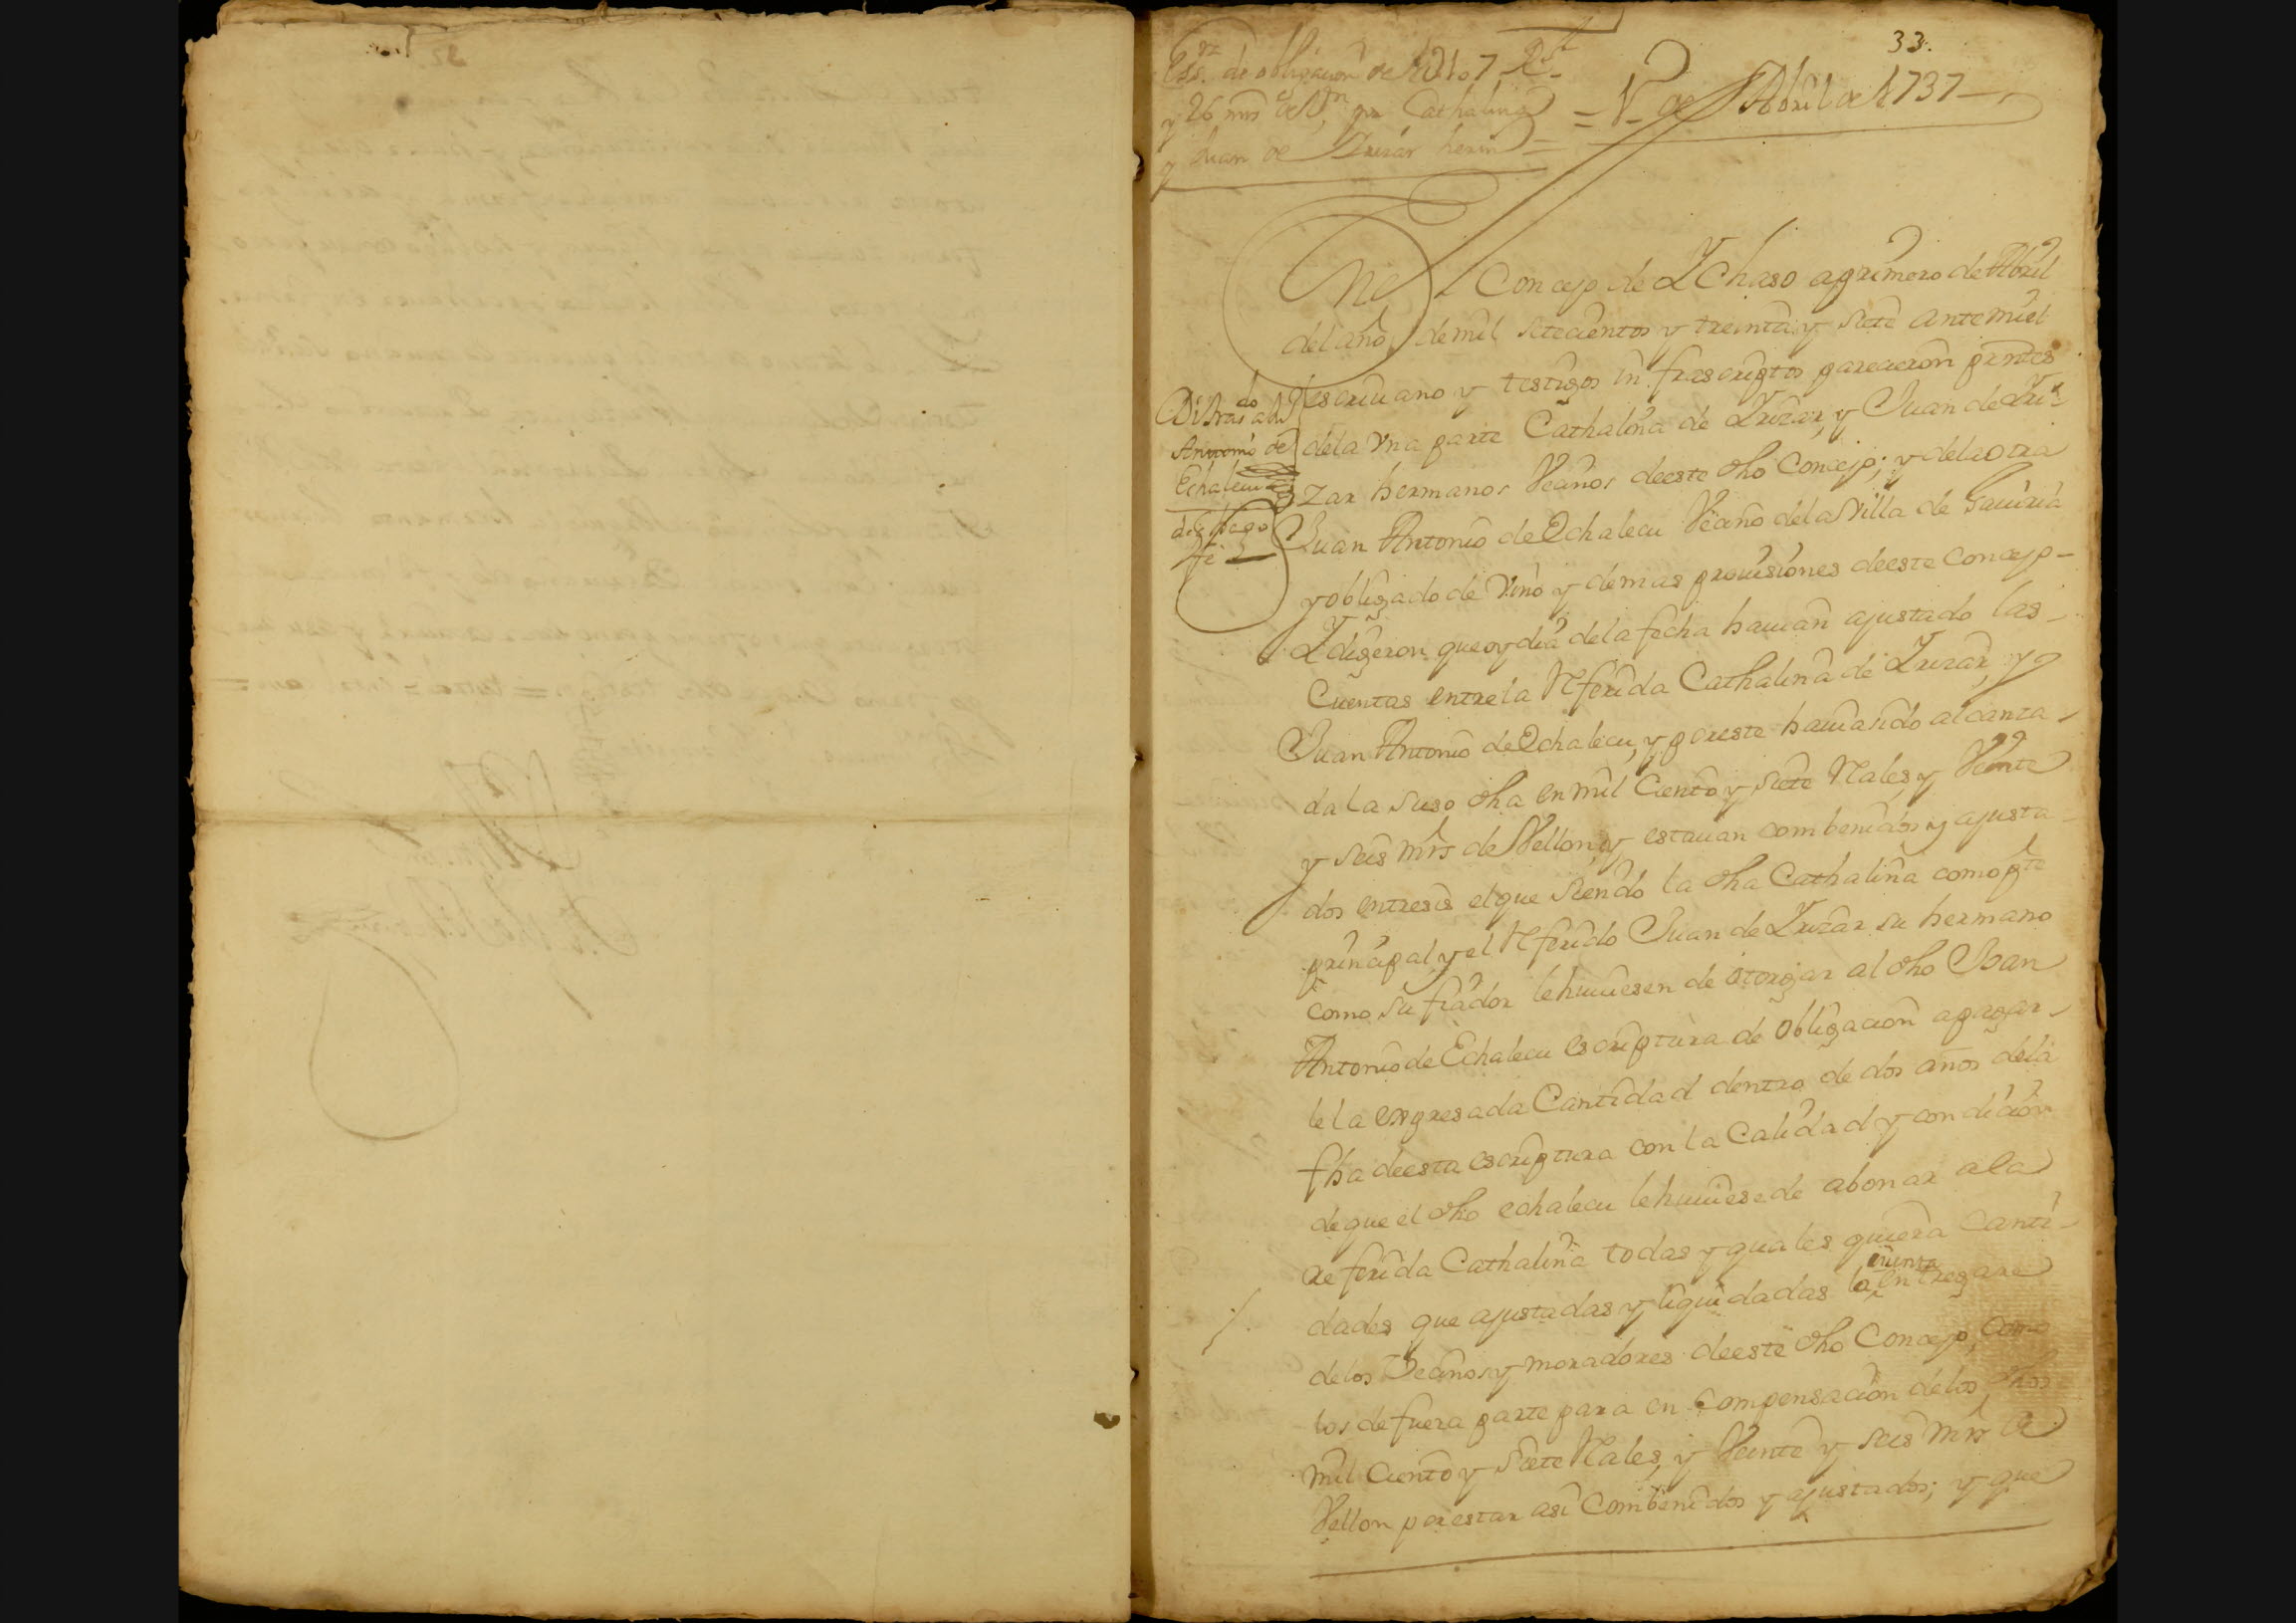 33.
Essª. de obligacion de 1U107 Rˢ
y 26 mrs de Vⁿ, qª Cathalina
y Juan de Yrizar herm =
= 1º de Abril de 1737
En el Concejo de Ychaso a primero de Abril
del año de mil setecientos y treinta y siete ante mi el
escriuano y testigos infrascriptos parecieron prntes
de la Vna parte Cathalina de Yrizar, y Juan de Yri-
zar hermanos Vecinos de este dho Concejo; y de la otra
Juan Antonio de Echalecu Vecino de la Villa de Gauiria
y obligado de Vino y demas prouisiones de este Concejo -
Y digeron que oy dia de la fecha hauian ajustado las -
Cuentas entre la Referida Cathalina de Yrizar, y
Juan Antonio de Echalecu, y por este hauia sido alcanza-
da la suso dha en mil Ciento y siete Rales, y Veinte
y seis mrs de Vellon, y estauan combenidos y ajusta-
dos entre si el que siendo la dha Cathalina como pte
principal, y el Referido Juan de Yrizar su hermano
como su fiador le huuiesen de otorgar al dho Joan
Antonio de Echalecu escriptura de obligacion a pagar-
le la expresada Cantidad dentro de dos años de la
fha de esta escriptura con la Calidad y condicion
de que el dho echalecu le huuiese de abonar a la
referida Cathalina todas y quales quiera Canti-
dades que ajustadas y liquidadas la entregare
de los Vecinos y moradores de este dho Concejo, como
los de fuera parte para en compensacion de los dhos
mil Ciento y siete Rales, y Veinte y seis mrs de
Vellon por estar asi Combenidos y ajustados; y que
Di tras do a Jn
Antonio de
Echalecu
de pago
fe